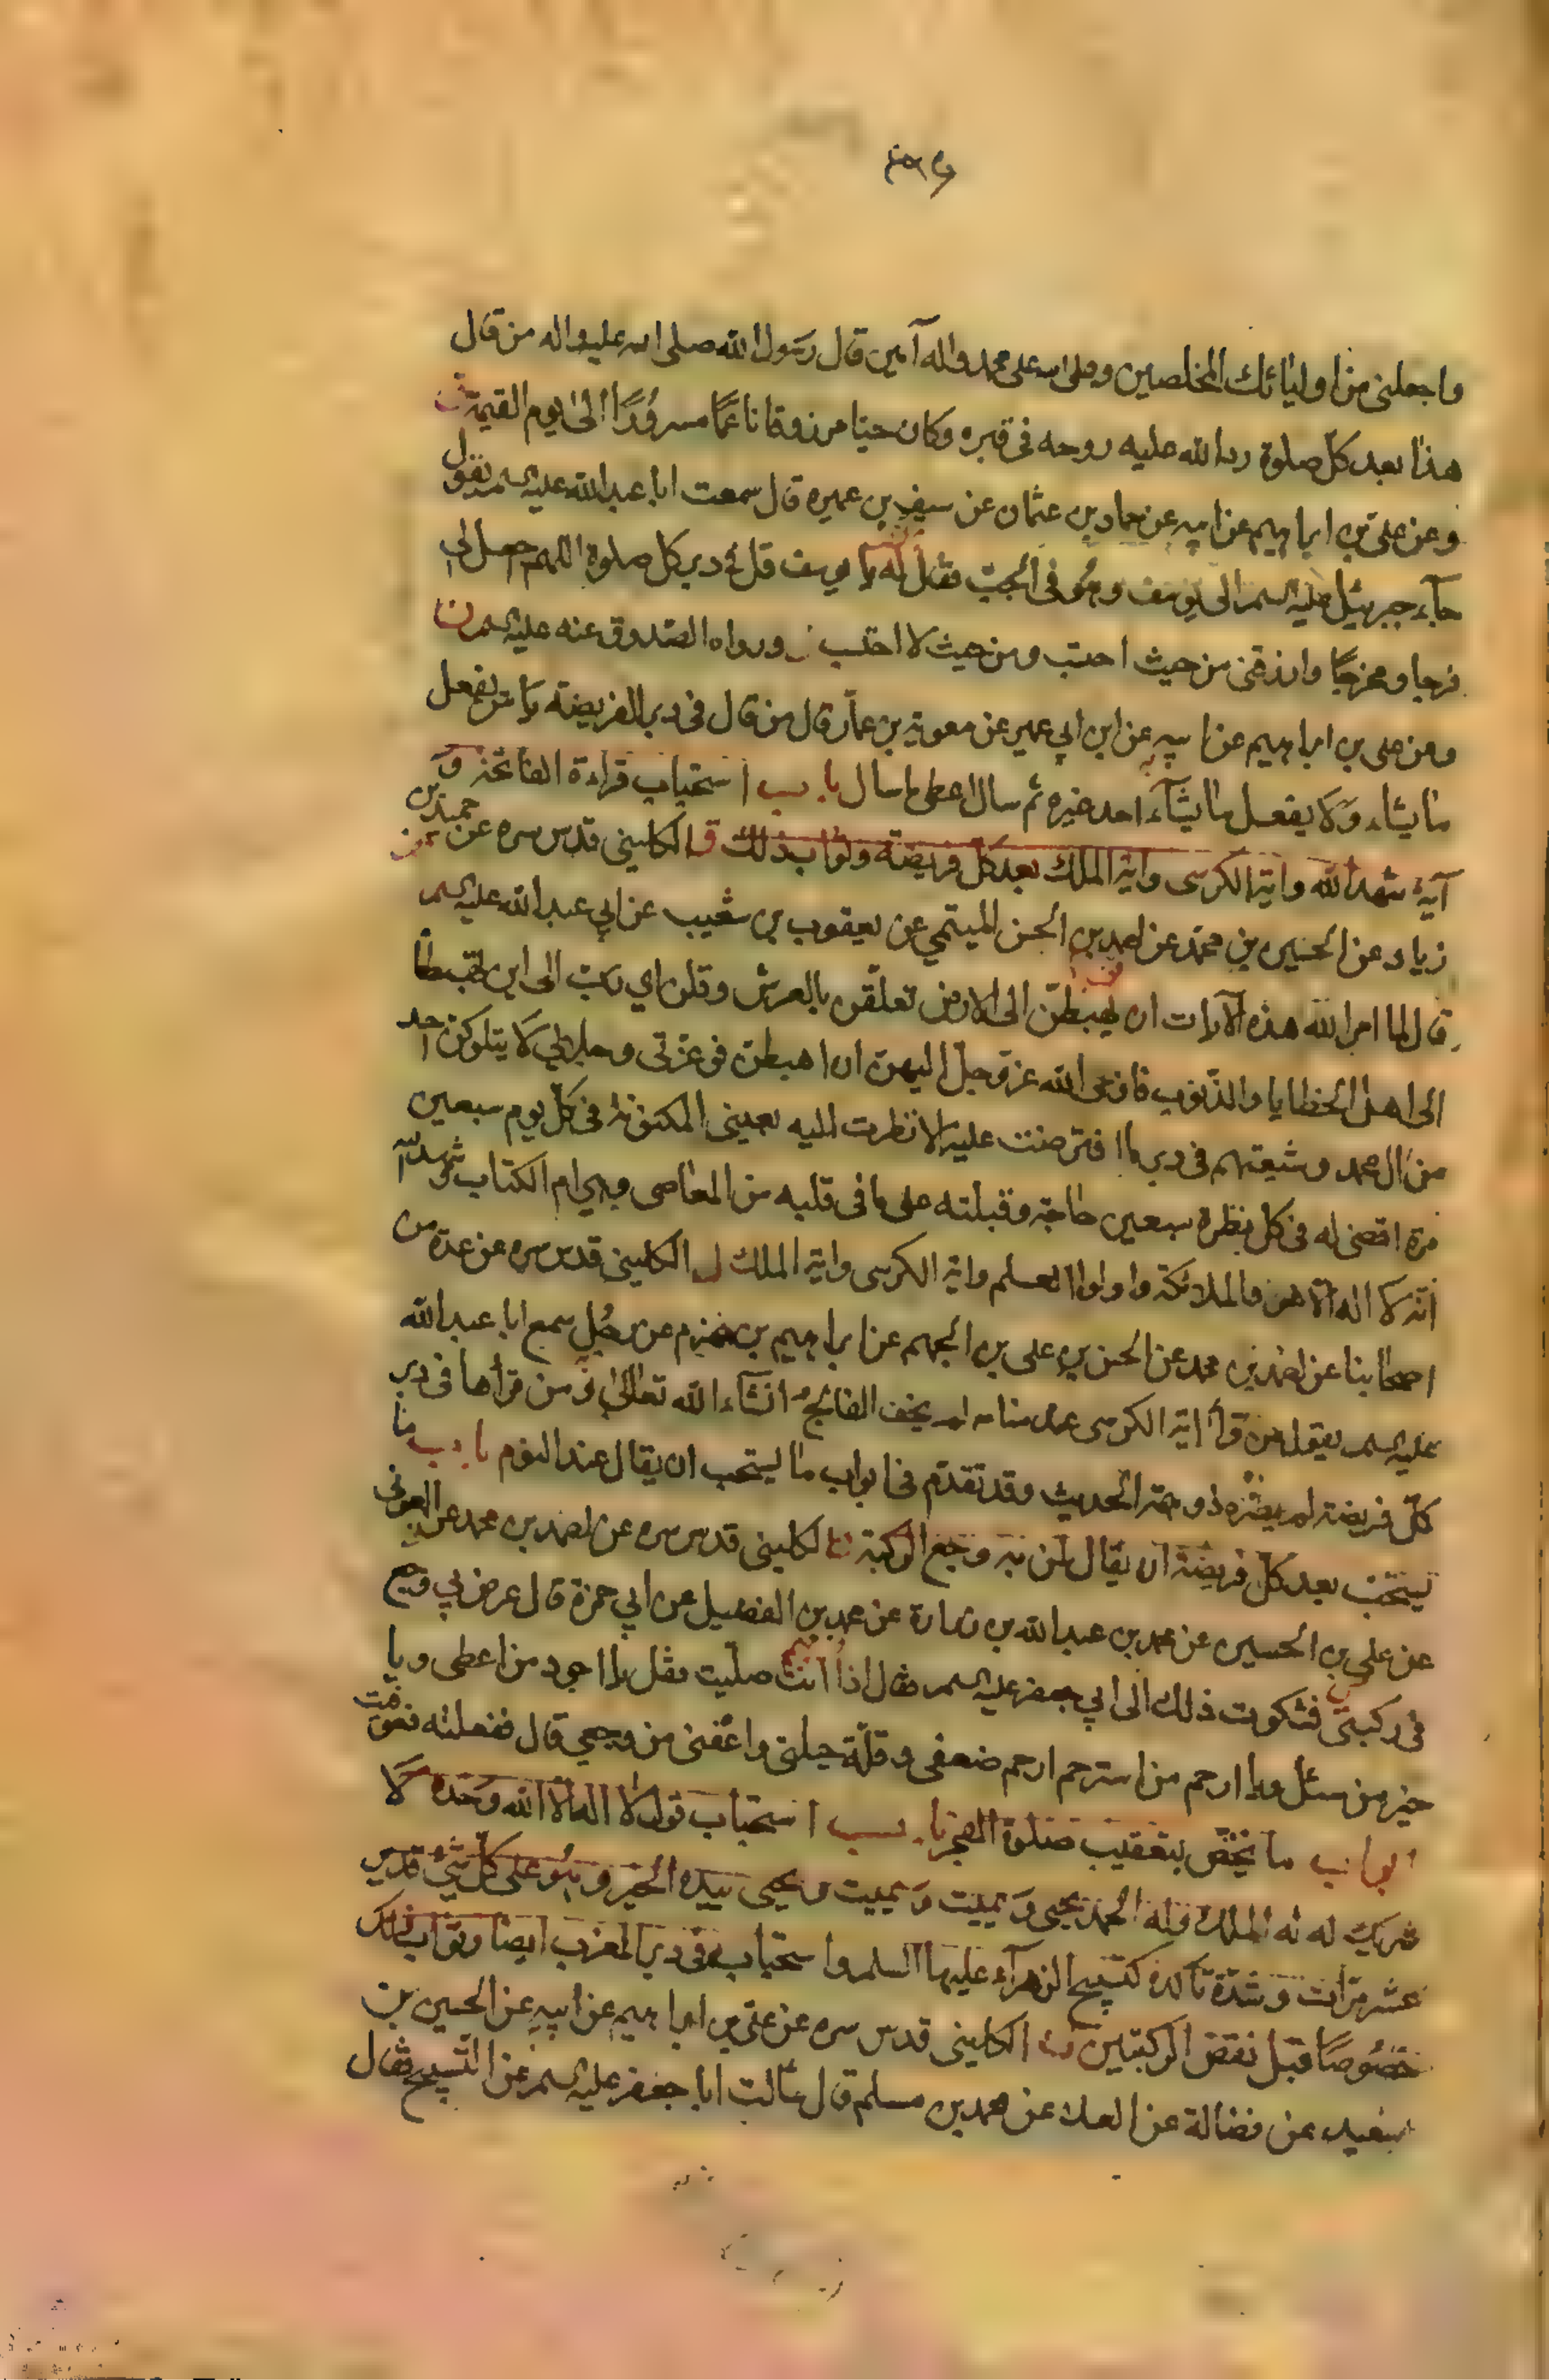 واجعلنى من اوليائك المخلصين وصلى الله على محمد واله آمين قال رسول الله صلى الله عليه واله من قال
هذا بعد كل صلوة رد الله عليه روحه فى قبره وكان حيا مرزوقا ناعما مسرورًا الى يوم القيمة
وعن على بن ابراهيم عن ابيه عن حماد بن عثمان عن سيف بن عميره قال سمعت ابا عبد الله عليه السلم يقول
جآء جبرئيل عليه السلم الى يوسف وهو فى الجب فقال له يا يوسف قل فى دبر كل صلوة اللهم اجعل لى
فرجا ومخرجًا وارزقنى من حيث احتسب ومن حيث لا احتسب ورواه الصدوق عنه عليه السلم
وعن على بن ابراهيم عن ابيه عن ابن ابى عمير عن معوية بن عمار قال من قال فى دبر الفريضة يا من يفعل
ما يشاء ولا يفعل ما يشآء احد غيره ثم سال اعطى ما سال باب استحباب قراءة الفاتحة و
آية شهد الله واية الكرسى واية الملك بعد كل فريضة وثواب ذلك الكلينى قدس سره عن حميد بن
زياد عن الحسين بن محمد عن احمد بن الحسن الميثمي عن يعقوب بن شعيب عن ابي عبد الله عليه السلم
قال لما امر الله هذه الآيات ان يهبطن الى الارض تعلقن بالعرش وقلن اي رب الى اين تهبطنا
الى اهل الخطايا والذنوب فاوحى الله عز وجل اليهن ان اهبطن فوعزتى وجلالي لا يتلوكن احد
من ال محمد وشيعتهم فى دبر ما افترضت عليه الا نظرت اليه بعينى المكنونة فى كل يوم سبعين
مرة اقضى له فى كل نظرة سبعين حاجة وقبلته على ما فى قلبه من المعاصى وهي ام الكتاب وشهد الله
انه لا اله الا هو والملائكة واولوا العلم واية الكرسى واية الملك الكلينى قدس سره عن عدة من
اصحابنا عن احمد بن محمد عن الحسن بن على بن الجهم عن ابراهيم بن مهزم عن رجل سمع ابا عبد الله
عليه السلم يقول من قرأ اية الكرسى عند منامه لم يخف الفالج انشآء الله تعالى ومن قرأها فى دبر
كل فريضة لم يضره ذو حمة الحديث وقد تقدم فى ابواب ما يستحب ان يقال عند النوم باب ما
يستحب بعد كل فريضة ان يقال لمن به وجع الركبة الكلينى قدس سره عن احمد بن محمد عن العوفى
عن علي بن الحسين عن محمد بن عبد الله بن زرارة عن محمد بن الفضيل عن ابي حمزة قال عرض بي وجع
فى ركبتى فشكوت ذلك الى ابي جعفر عليه السلم فقال اذا انت صليت فقل يا اجود من اعطى ويا
خير من سئل ويا ارحم من استرحم ارحم ضعفى وقلة حيلتى واعفنى من وجعي قال ففعلته فعوفيت
ابواب ما يختص بتعقيب صلوة الفجر باب استحباب قول لا اله الا الله وحده لا
شريك له له الملك وله الحمد يحيى ويميت ويميت ويحيى بيده الخير وهو على كل شئ قدير
عشر مرات وشدة تأكده كتسبيح الزهرآء عليها السلم واستحبابه فى دبر المغرب ايضا وثواب ذلك
خصوصًا قبل نقض الركبتين الكلينى قدس سره عن على بن ابراهيم عن ابيه عن الحسين بن
سعيد عن فضالة عن العلا عن محمد بن مسلم قال سألت ابا جعفر عليه السلم عن التسبيح فقال